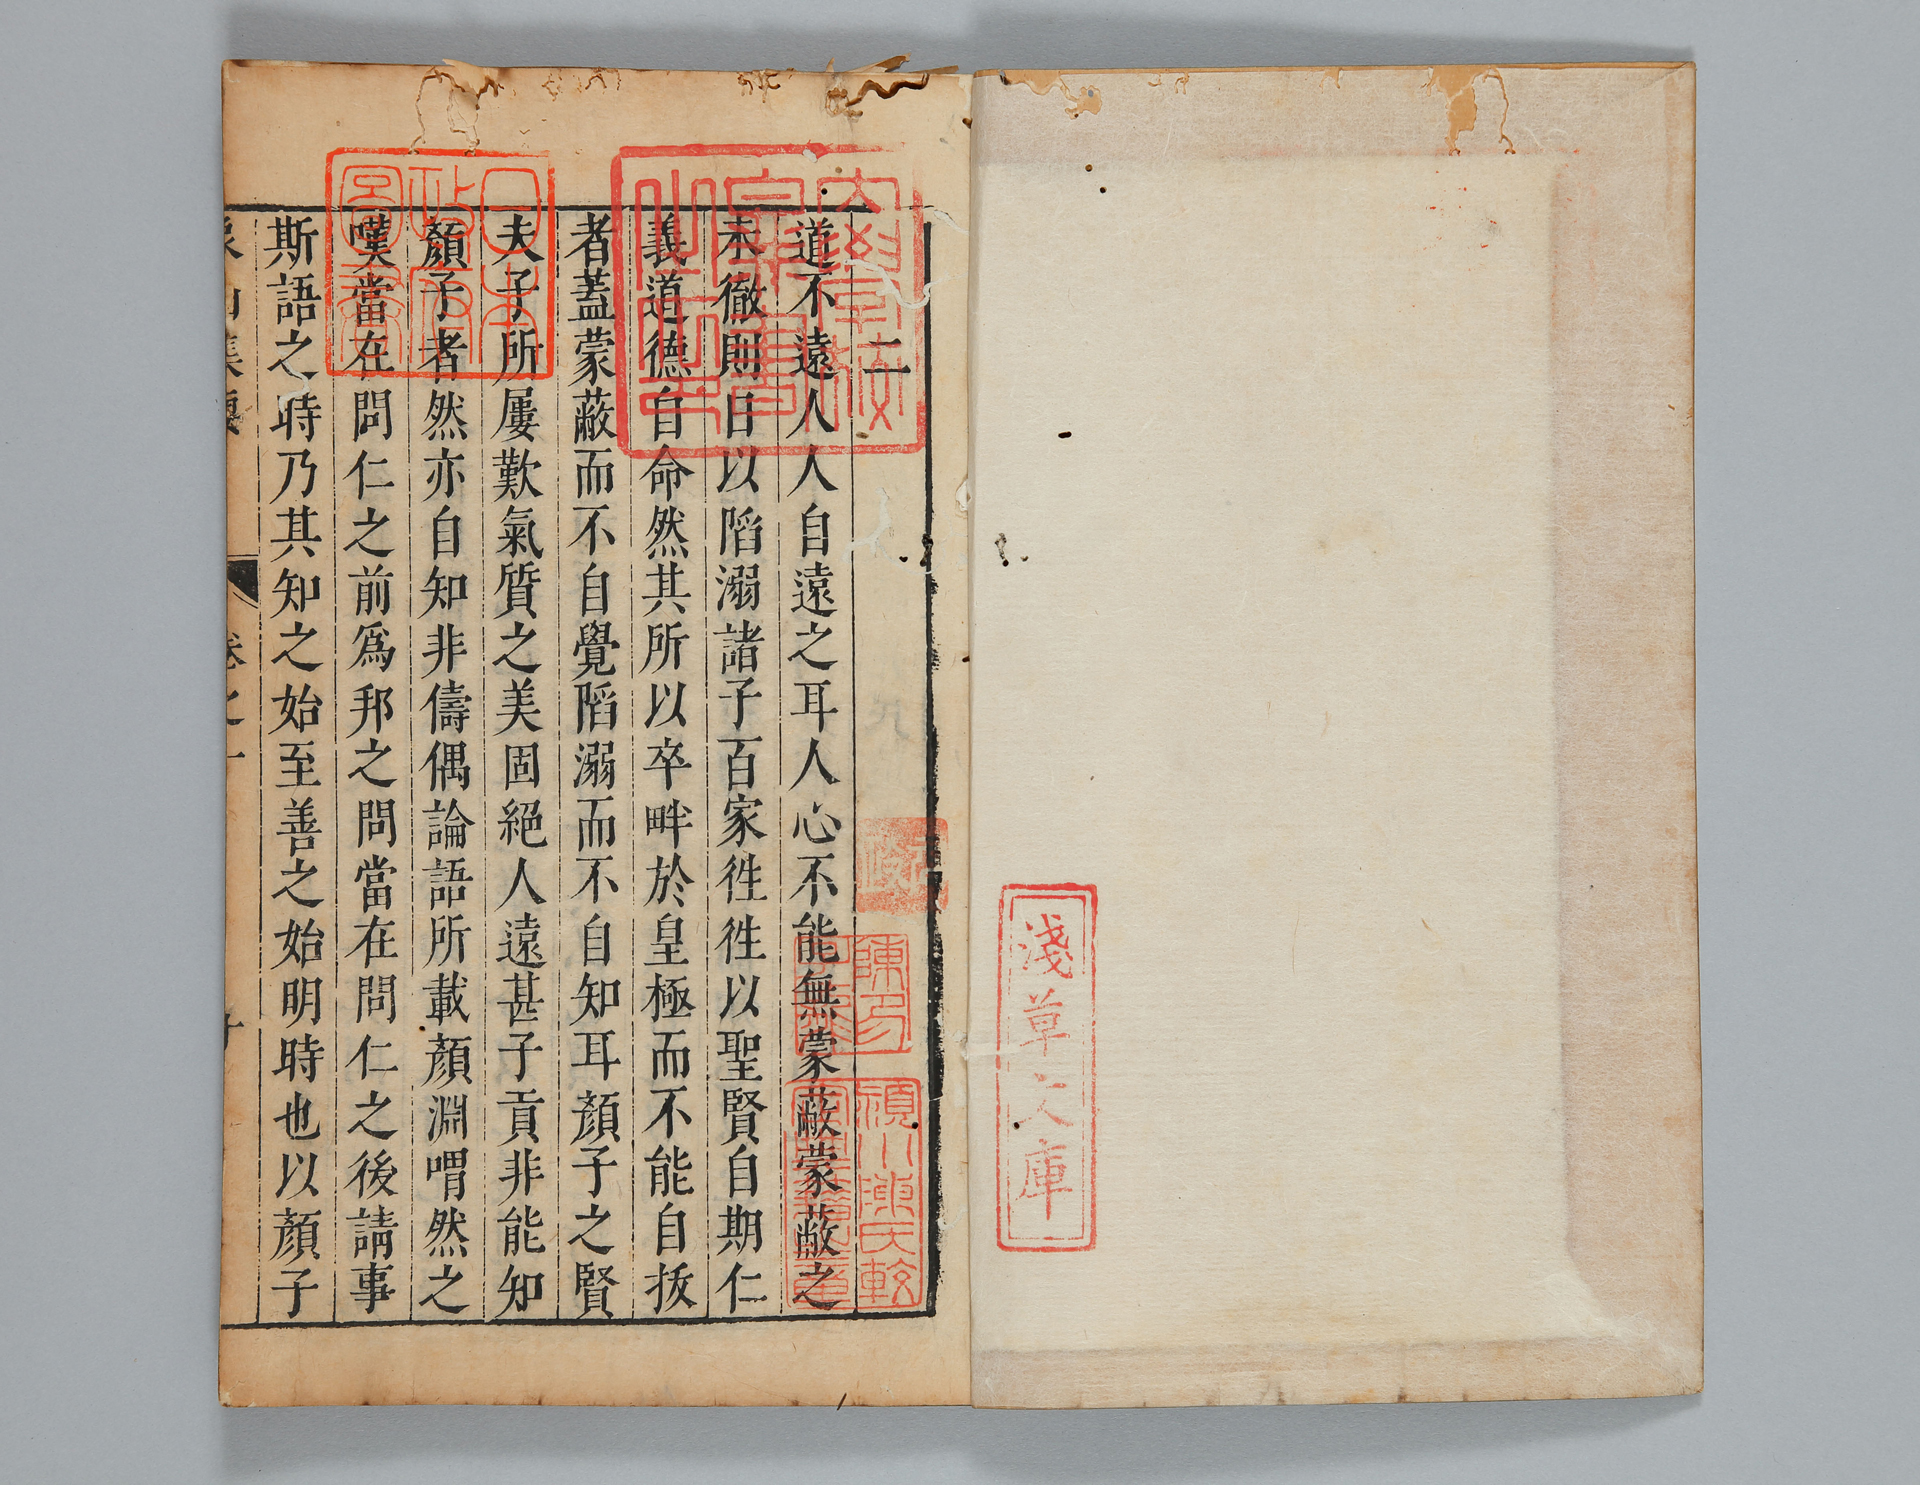 淺草文庫
二
道不遠人人自遠之耳人心不能無蒙蔽蒙蔽之
未徹則日以陷溺諸子百家徃徃以聖賢自期仁
義道德自命然其所以卒畔於皇極而不能自拔
者蓋蒙蔽而不自覺陷溺而不自知耳顏子之賢
夫子所屢歎氣質之美固絕人遠甚子貢非能知
顏子者然亦自知非儔偶論語所載顏淵喟然之
嘆當在問仁之前爲邦之問當在問仁之後請事
斯語之時乃其知之始至善之始明時也以顏子
日本政府圖書